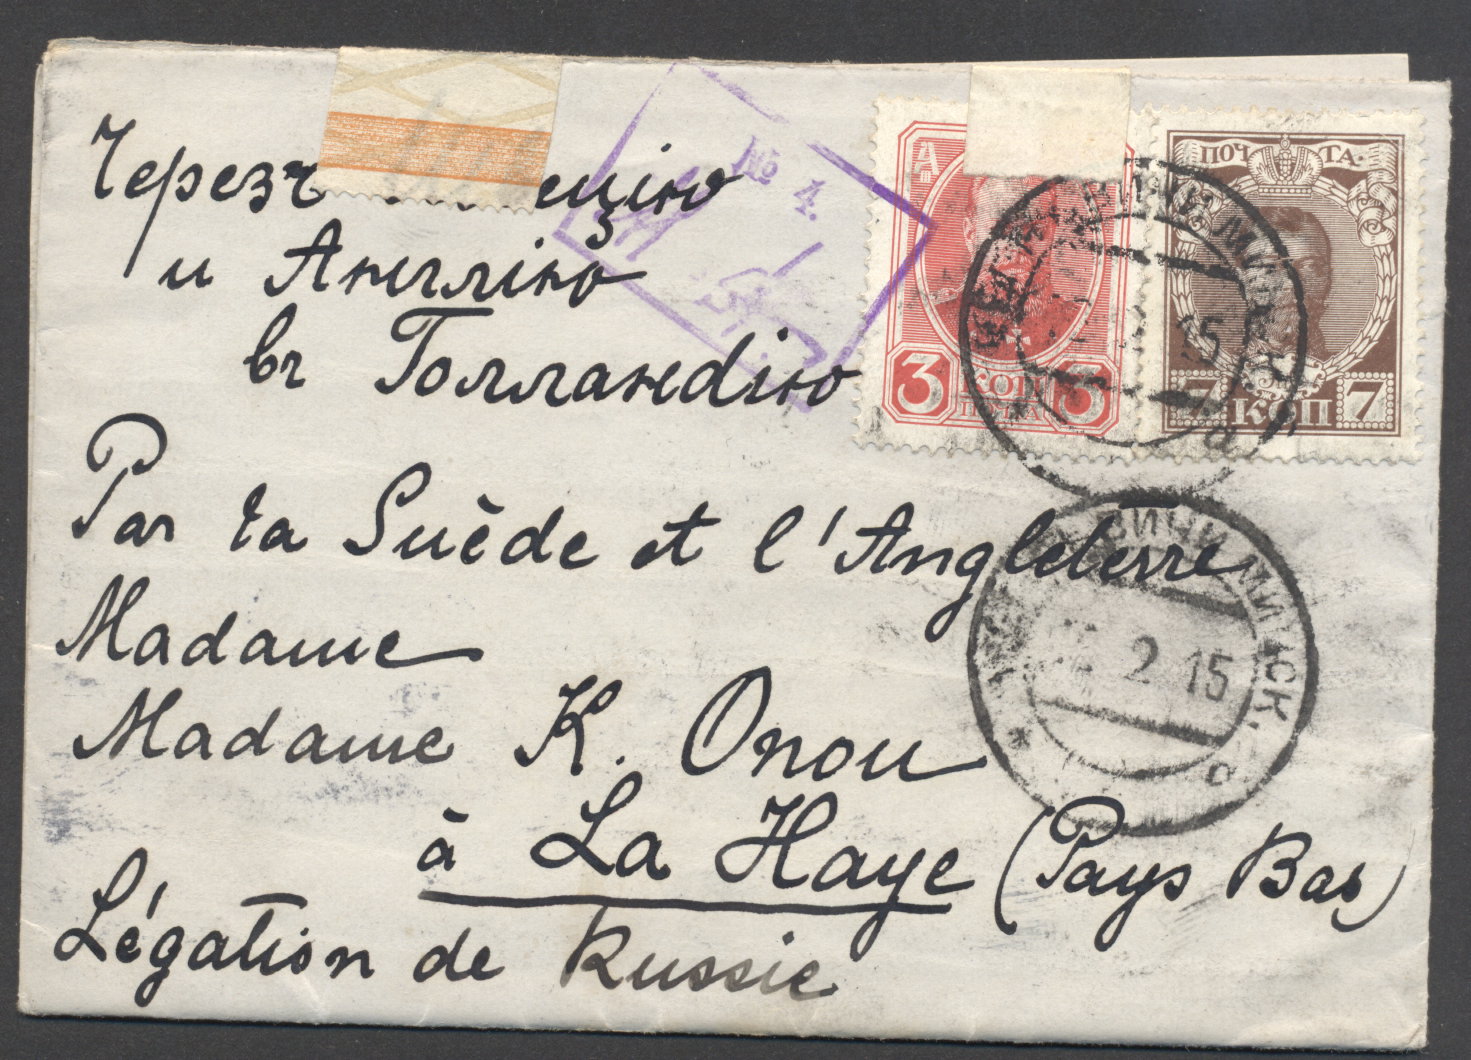 Черезъ ецію
и Англію
въ Голландію
Par la Suède et l'Angleterre
Madame
Madame K. Onou
à La Haye (Pays Bas)
Légation de Russie
№ 4.
3 КОП 3
ПОЧТА
7 КОП 7
ВИЧИ МИНСК.
15
а
ВИЧИ МИНСК.
2 15
а